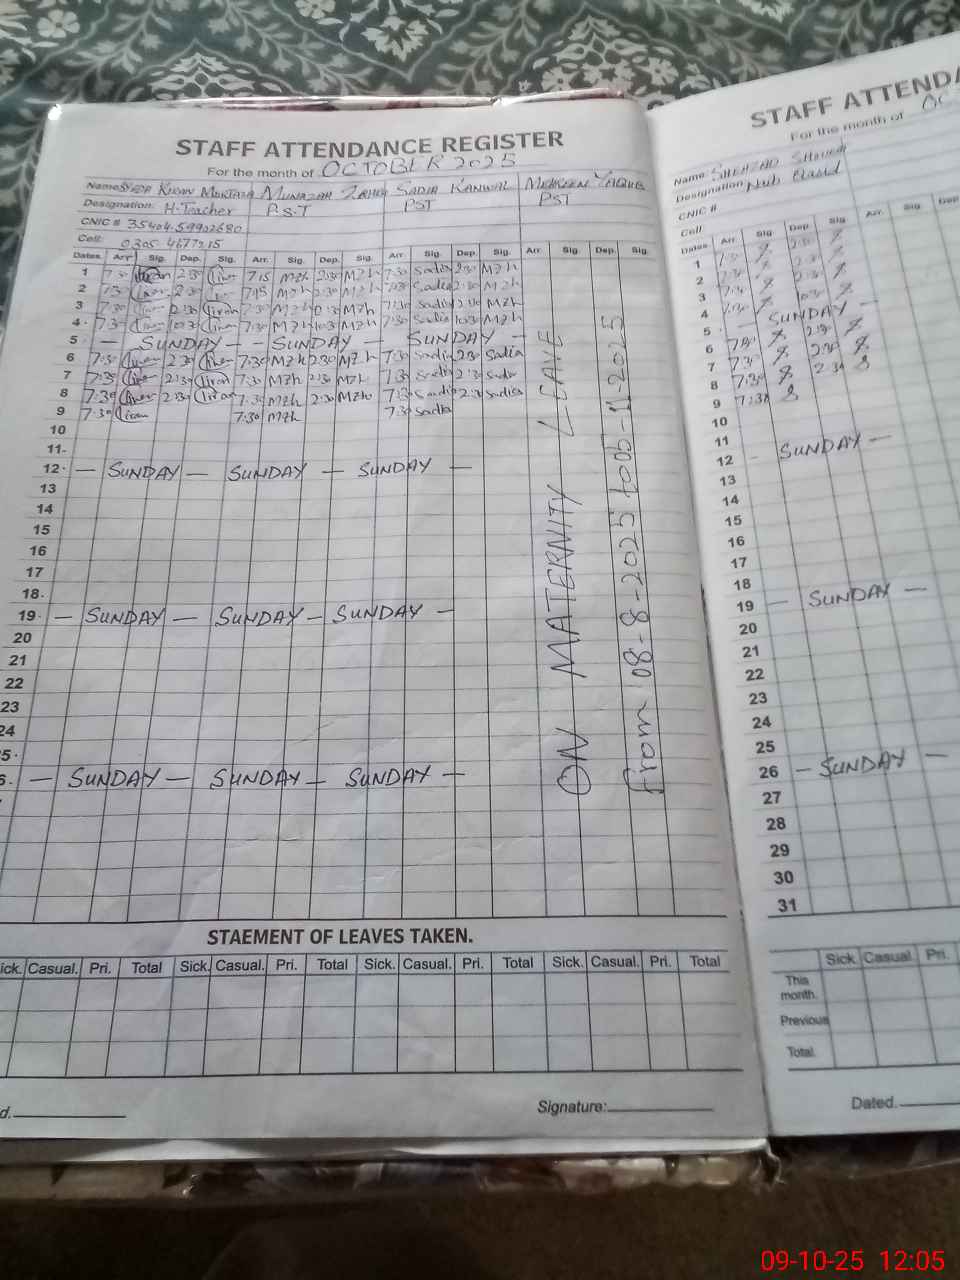 STAFF ATTENDANCE REGISTER
For the month of OCTOBER 2025
Name SYEDA KIRAN MURTAZA MUNAZAH ZAHRA SADIA KANWAL MEHREEN YAQUB
Designation: H.Teacher P.S.T PST PST
CNIC # 35404.59902680
Cell: 0305-4677215
Dates. Arr. Sig. Dep. Sig. Arr. Sig. Dep. Sig. Arr. Sig. Dep. Sig. Arr. Sig. Dep. Sig.
1 7:30 Kiran 2:30 Kiran 7:15 MZh 2:30 MZh 7:30 Sadia 2:30 MZh
2 7:30 Kiran 2:30 7:15 MZh 2:30 MZh 7:30 Sadia 2:30 MZh
3 7:30 Kiran 2:30 Kiran 7:30 MZh 2:30 MZh 7:30 Sadia 2:30 MZh
4 7:30 Kiran 10:30 Kiran 7:30 MZh 10:30 MZh 7:30 Sadia 10:30 MZh
5 - SUNDAY - - SUNDAY - SUNDAY -
6 7:30 Kiran 2:30 Kiran 7:30 MZh 2:30 MZh 7:30 Sadia 2:30 Sadia
7 7:30 Kiran 2:30 Kiran 7:30 MZh 2:30 MZh 7:30 Sadia 2:30 Sadia
8 7:30 Kiran 2:30 Kiran 7:30 MZh 2:30 MZh 7:30 Sadia 2:30 Sadia
9 7:30 Kiran 7:30 MZh 7:30 Sadia
10
11
12 - SUNDAY - SUNDAY - SUNDAY -
13
14
15
16
17
18
19 - SUNDAY - SUNDAY - SUNDAY -
20
21
22
23
24
5
6 - SUNDAY - SUNDAY - SUNDAY -
ON MATERNITY LEAVE
from 08-8-2025 to 05-11-2025
STAEMENT OF LEAVES TAKEN.
ick. Casual. Pri. Total Sick. Casual. Pri. Total Sick. Casual. Pri. Total Sick. Casual. Pri. Total
d.
Signature:
STAFF ATTENDA
For the month of OC
Name: SHEHZAD
Designation: Naib Qasid
CNIC #
Cell
Dates. Arr. Sig. Dep. Sig. Arr. Sig. Dep
1 7:30 2:30
2 7:30 2:30
3 7:30 2:30
4 7:30 10:30
5 - SUNDAY -
6 7:30 2:30
7 7:30 2:30
8 7:30
9 7:30
10
11
12 - SUNDAY -
13
14
15
16
17
18
19 - SUNDAY -
20
21
22
23
24
25
26 - SUNDAY -
27
28
29
30
31
Sick. Casual. Pri.
This month.
Previous
Total.
Dated.
09-10-25 12:05